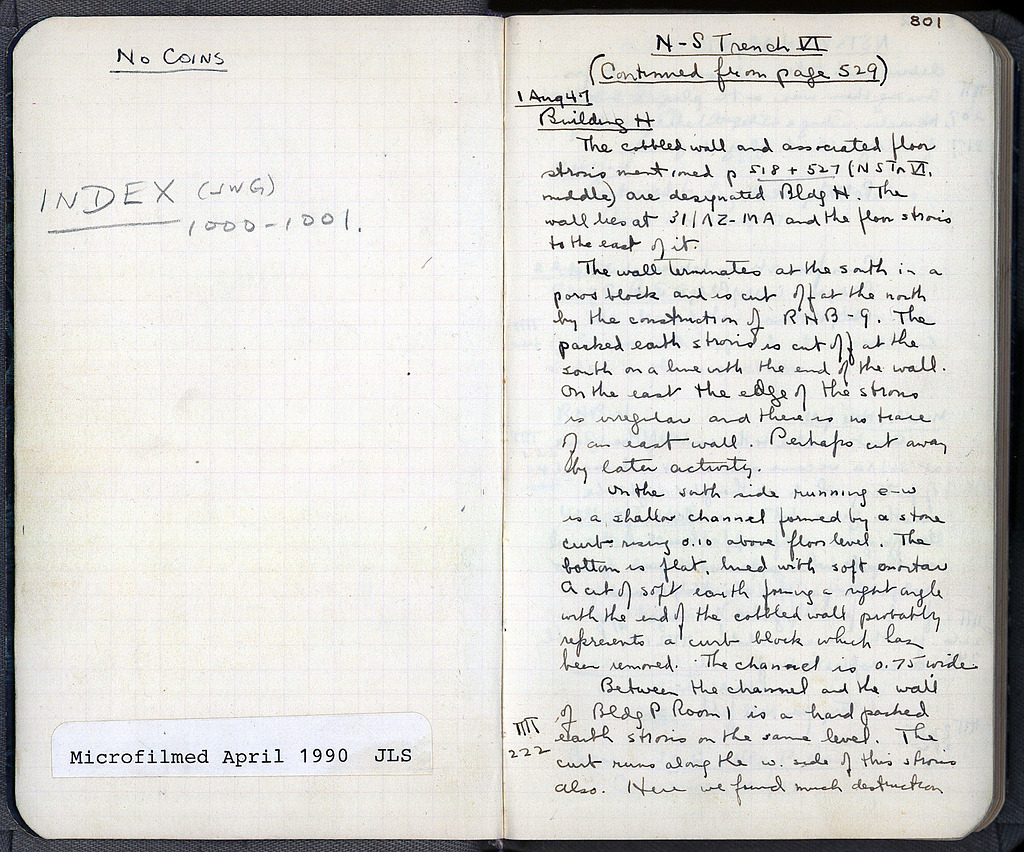 No COINS
INDEX (JWG)
1000-1001.
Microfilmed April 1990 JLS
801
N-S Trench VI
(Continued from page 529)
1 Aug 47
Building H
The cobbled wall and associated floor
strosis mentioned p 518 + 527 (NSTr VI,
middle) are designated Bldg H. The
wall lies at 31/ΛZ-MA and the floor strosis
to the east of it.
The wall terminates at the south in a
poros block and is cut off at the north
by the construction of RNB-9. The
packed earth strosis is cut off at the
south on a line with the end of the wall.
On the east the edge of the strosis
is irregular and there is no trace
of an east wall. Perhaps cut away
by later activity.
On the south side running e-w
is a shallow channel formed by a stone
curb rising 0.10 above floor level. The
bottom is flat, lined with soft mortar
A cut of soft earth forming a right angle
with the end of the cobbled wall probably
represents a curb block which has
been removed. The channel is 0.75 wide.
Between the channel and the wall
of Bldg P Room 1 is a hard packed
222
earth strosis on the same level. The
curb runs along the w. side of this strosis
also. Here we found much destruction